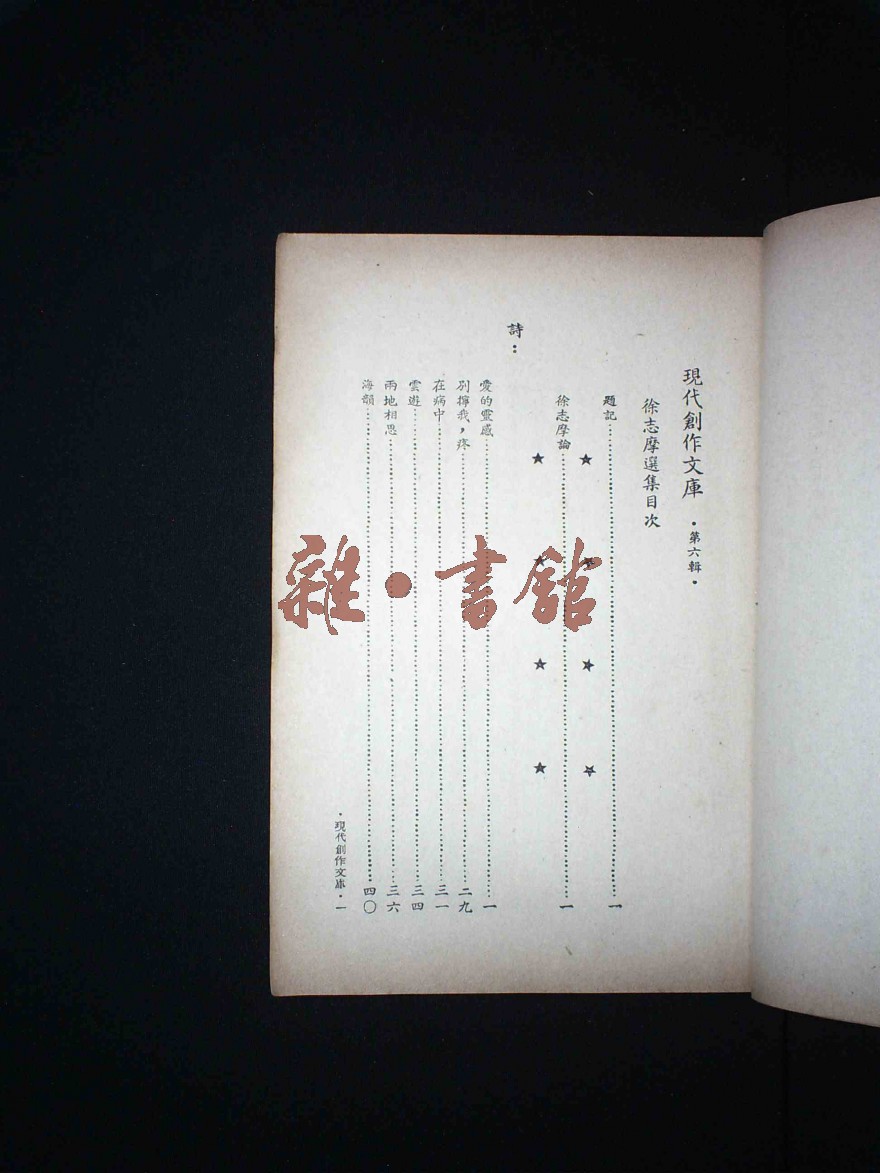 現代創作文庫 •第六輯•
徐志摩選集目次
題記……一
徐志摩論……一
詩：
愛的靈感……一
別擰我，疼……二九
在病中……三一
雲遊……三四
兩地相思……三六
海韻……四〇
•現代創作文庫•一
雜•書館